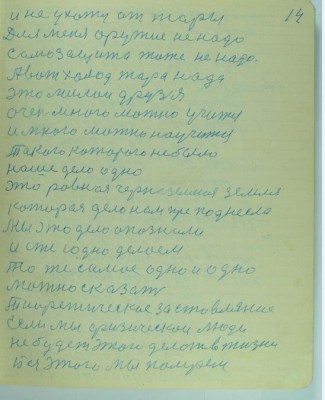 14
и не ухожу от жары
Для меня оружие не надо
Самозащита тоже не надо.
А вот холод жара надо
это милои друзя
очен много можно учится
и много можно научится
такого которого не было
наше дело одно
это ровная черназемная земля
которая дело нам преподнесла
Мы это дело опознали
и сегодно делаем
то же самое одно и одно
можно сказать
Тиоретическое заставляние
Если мы физическои люди
не будет этого делать в жизни
без этого мы помрем